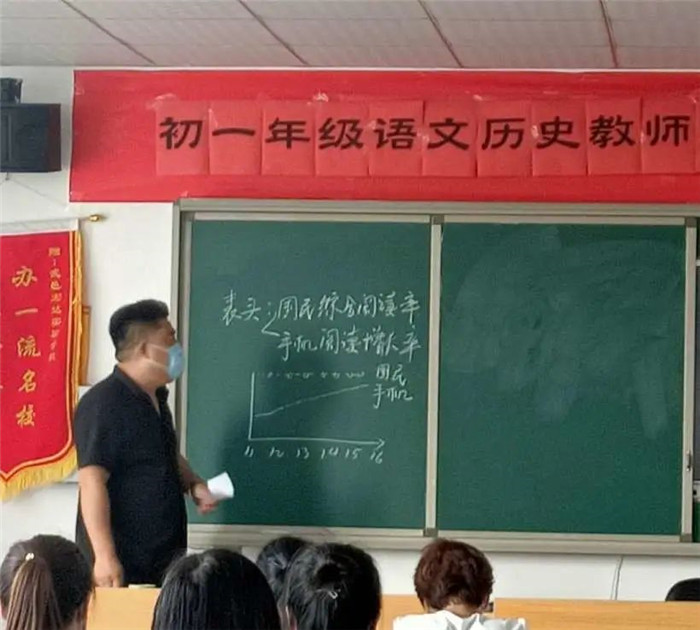 初一年级语文历史教师
办一流名校
表头：国民综合阅读率
手机阅读增长率
国民
手机
11 12 13 14 15 16